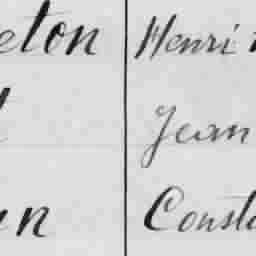 eton Henri
Jean
n Consta